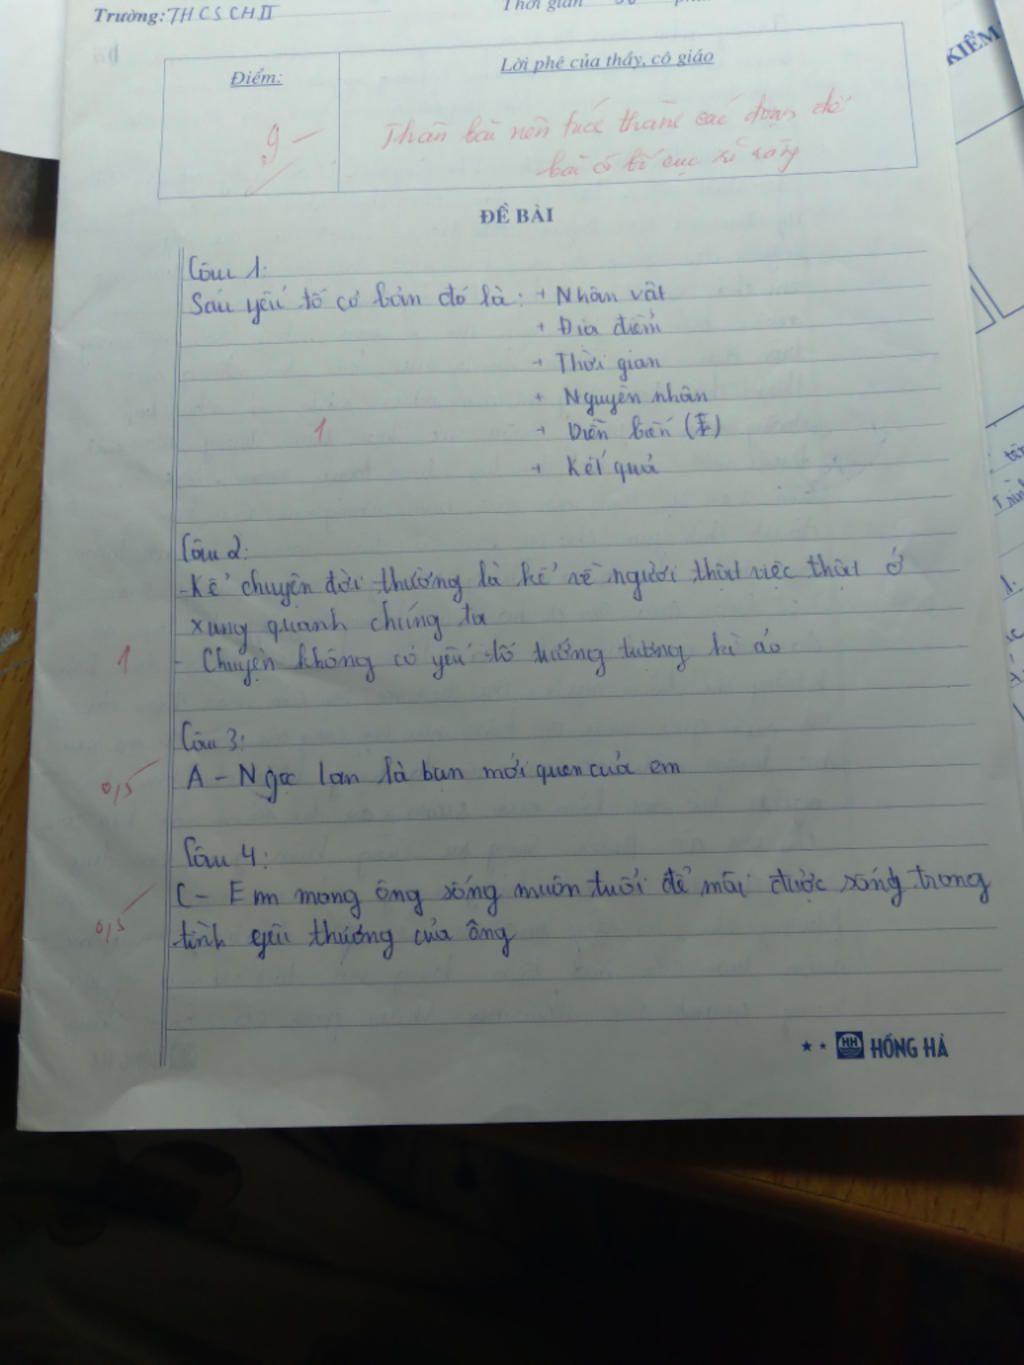 Trường: THCS CH II
Thời gian
KIỂM
Điểm:
Lời phê của thầy, cô giáo
9
Thân bài nên tách thành các đoạn để
bài có bố cục rõ ràng
ĐỀ BÀI
Câu 1:
Sáu yếu tố cơ bản đó là: + Nhân vật
+ Địa điểm
+ Thời gian
+ Nguyên nhân
1
+ Diễn biến
+ Kết quả
Câu 2:
- Kể chuyện đời thường là kể về người thật việc thật ở
xung quanh chúng ta
1
- Chuyện không có yếu tố tưởng tượng kì ảo
Câu 3:
0,5
A - Ngọc lan là bạn mới quen của em
Câu 4:
C - Em mong ông sống muôn tuổi để mãi được sống trong
0,5
tình yêu thương của ông
HH HỒNG HÀ